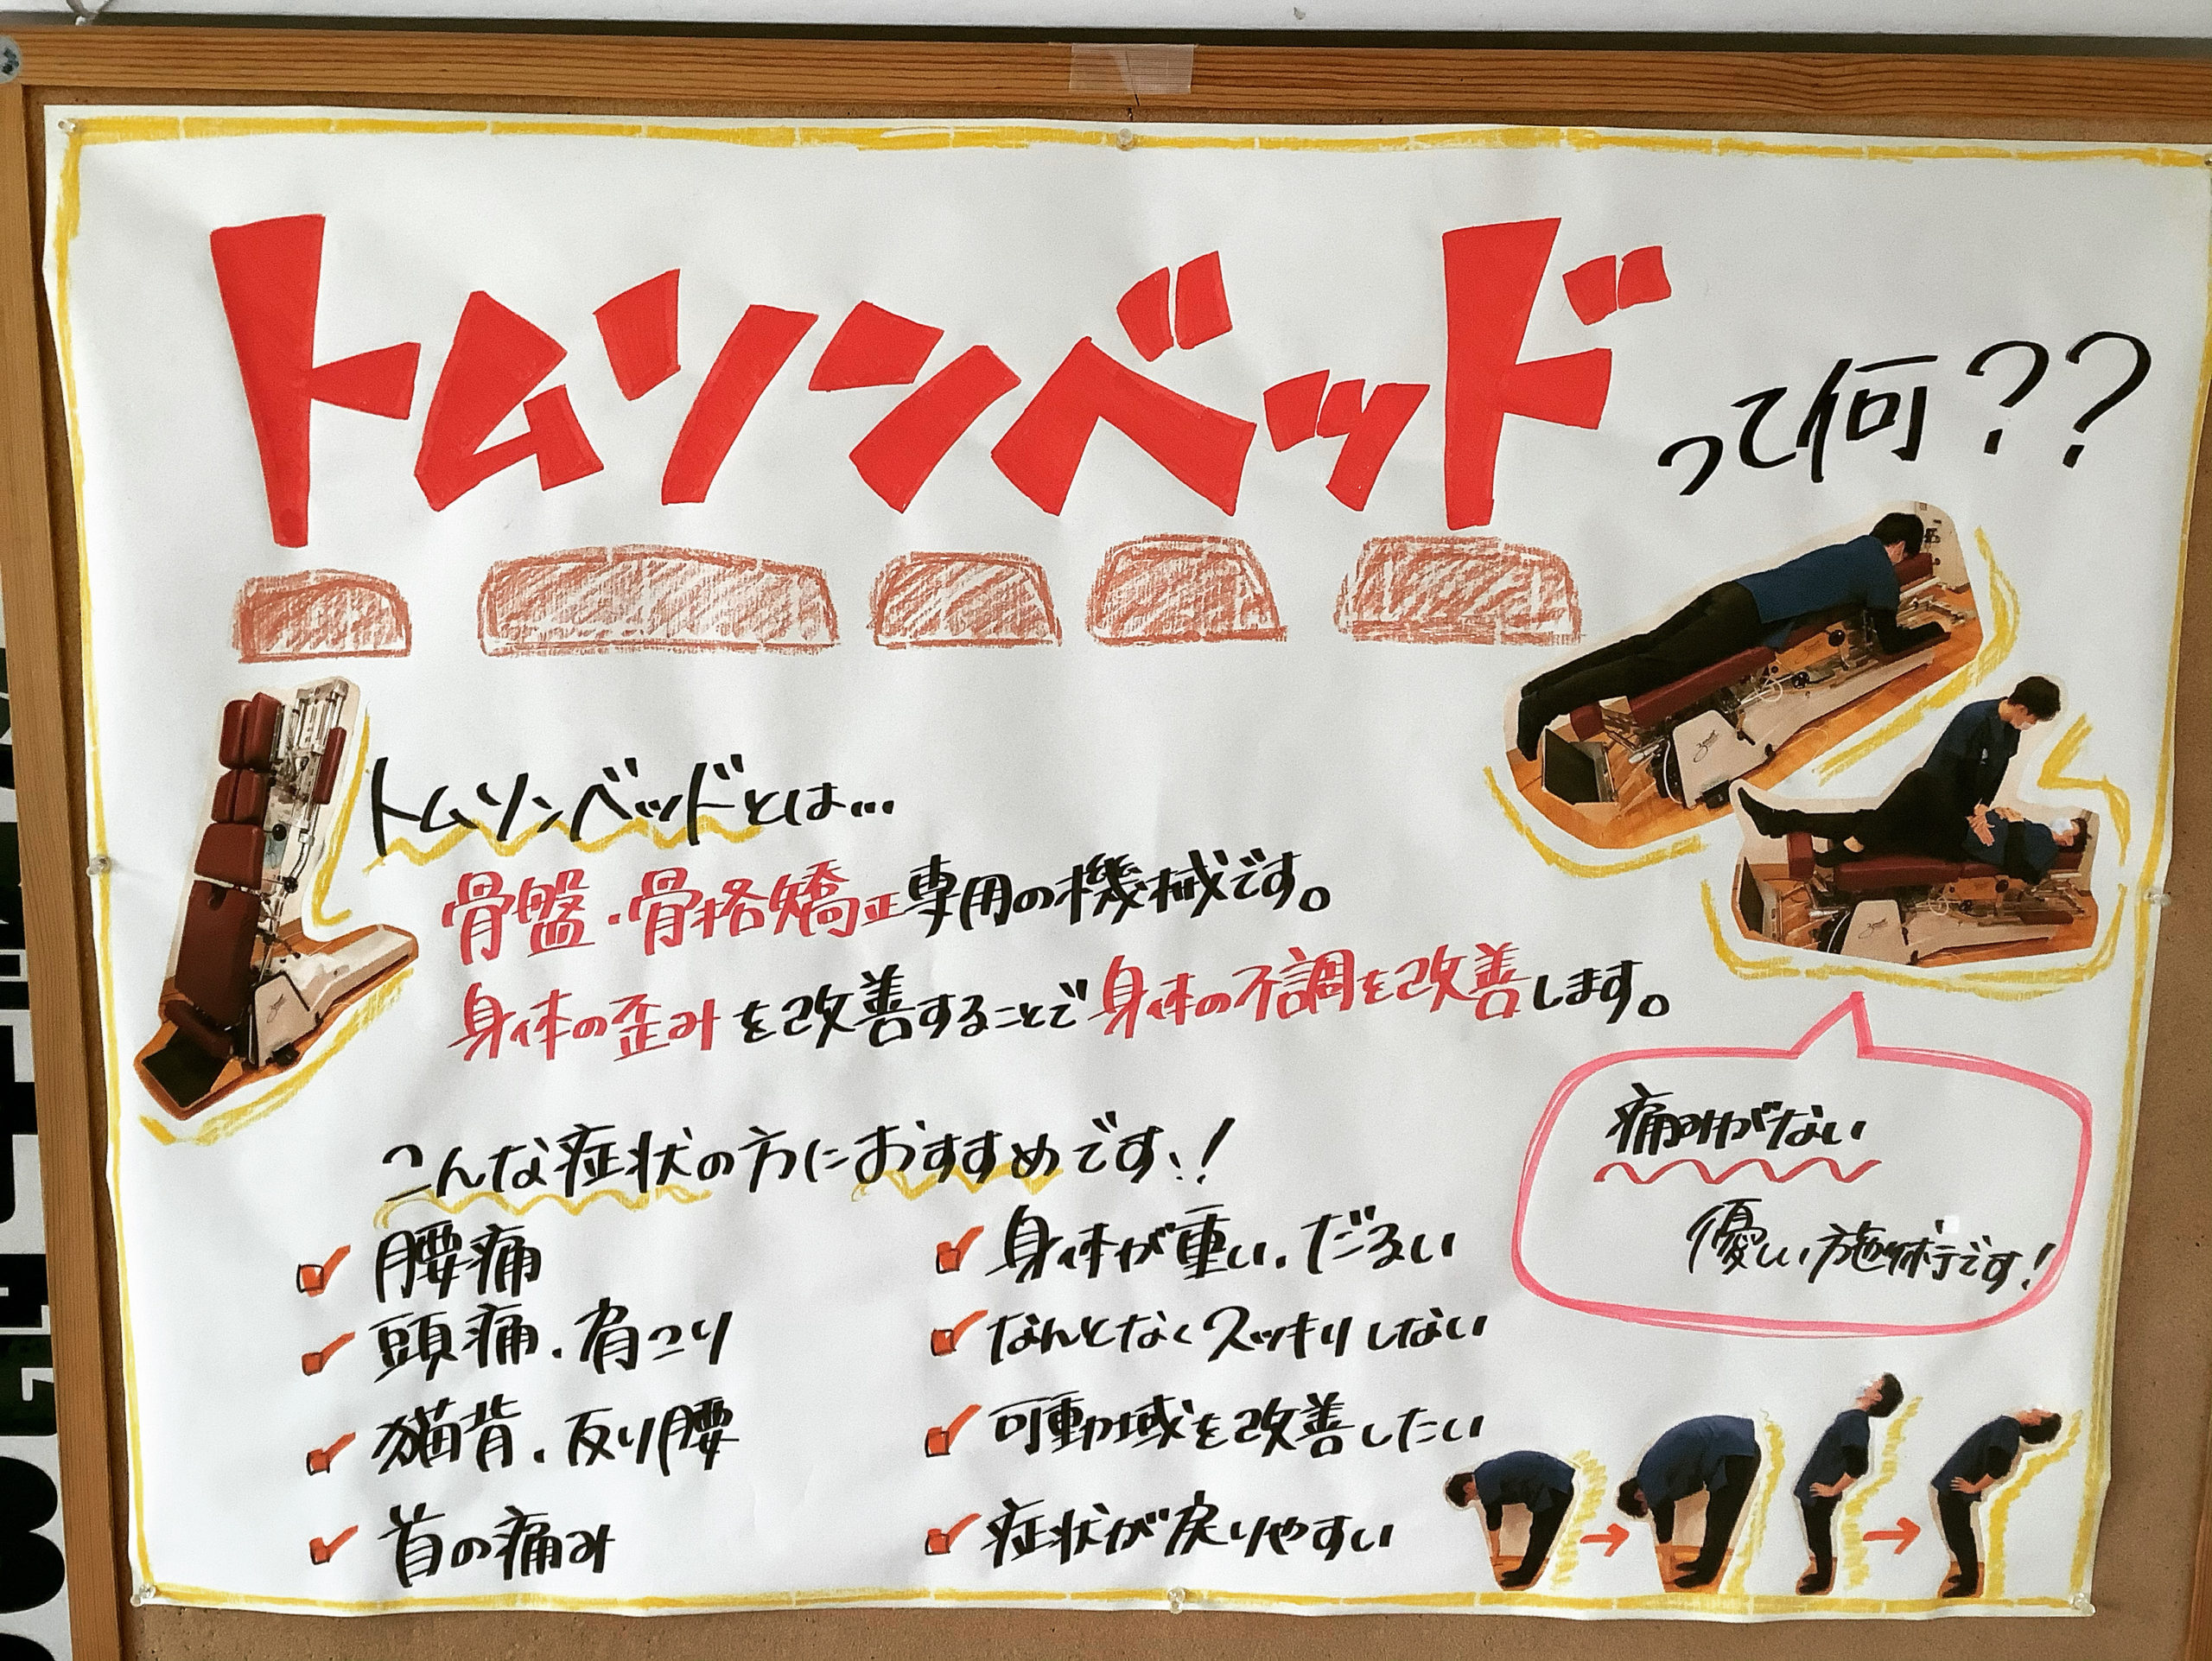 トムソンベッドって何??
トムソンベッドとは…
骨盤・骨格矯正専用の機械です。
身体の歪みを改善することで身体の不調を改善します。
痛みがない
優しい施術です!
こんな症状の方におすすめです!
腰痛
頭痛・肩コリ
猫背・反り腰
首の痛み
身体が重い・だるい
なんとなくスッキリしない
可動域を改善したい
症状が戻りやすい